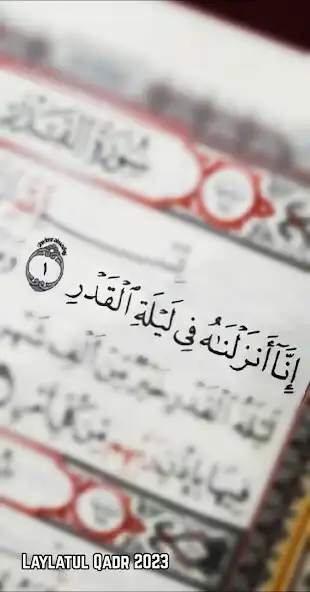 سُورَةُ القَدْرِ
إِنَّآ أَنزَلْنَـٰهُ فِى لَيْلَةِ ٱلْقَدْرِ ١
لَيْلَةُ ٱلْقَدْرِ خَيْرٌ مِّنْ أَلْفِ شَهْرٍ
فِيهَا بِإِذْنِ رَبِّهِم مِّن كُلِّ أَمْرٍ
LAYLATUL QADR 2023